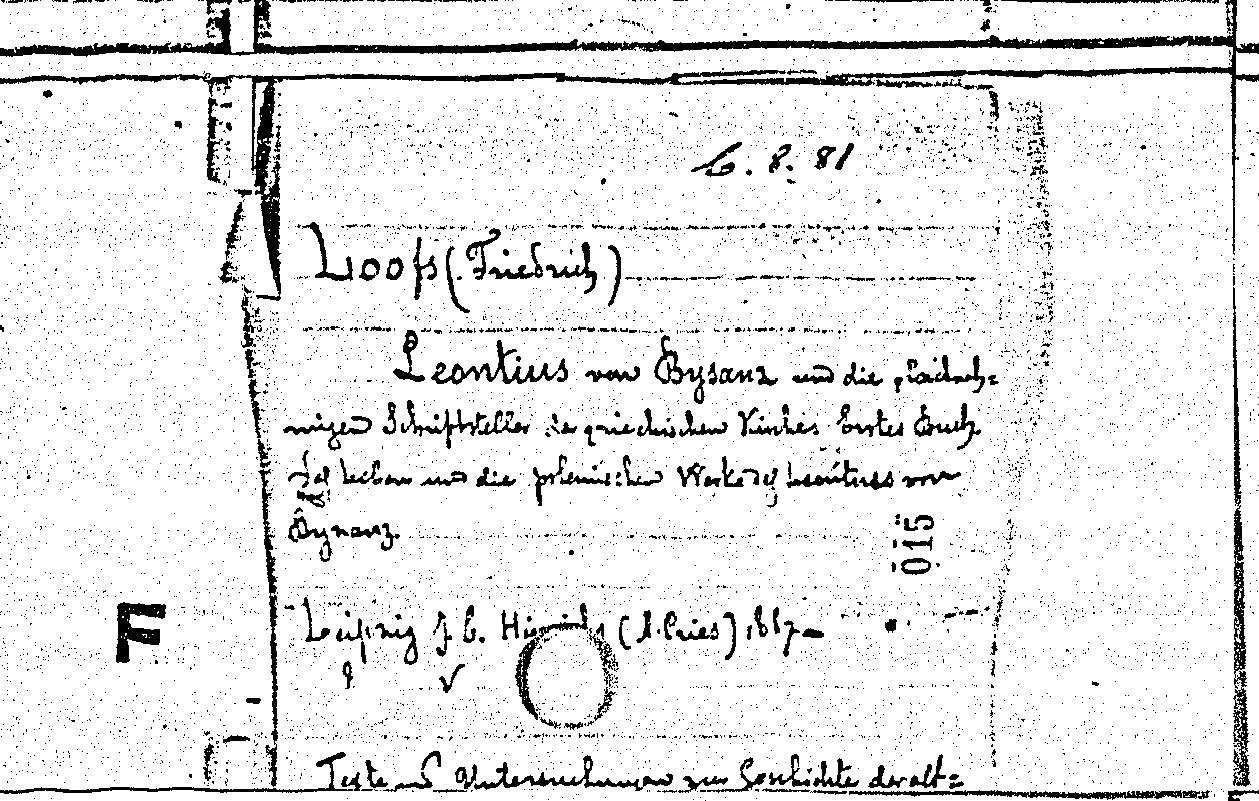 C. 8. 81
Loofs (Friedrich)
Leontius von Bysanz und die gleichna-
migen Schriftsteller der griechischen Kirche. Erstes Buch.
Das Leben und die polemischen Werke des Leontius von
Bysanz.
015
Leipzig J. C. Hinrichs (A. Pries) 1887
F
Texte und Untersuchungen zur Geschichte der alt=